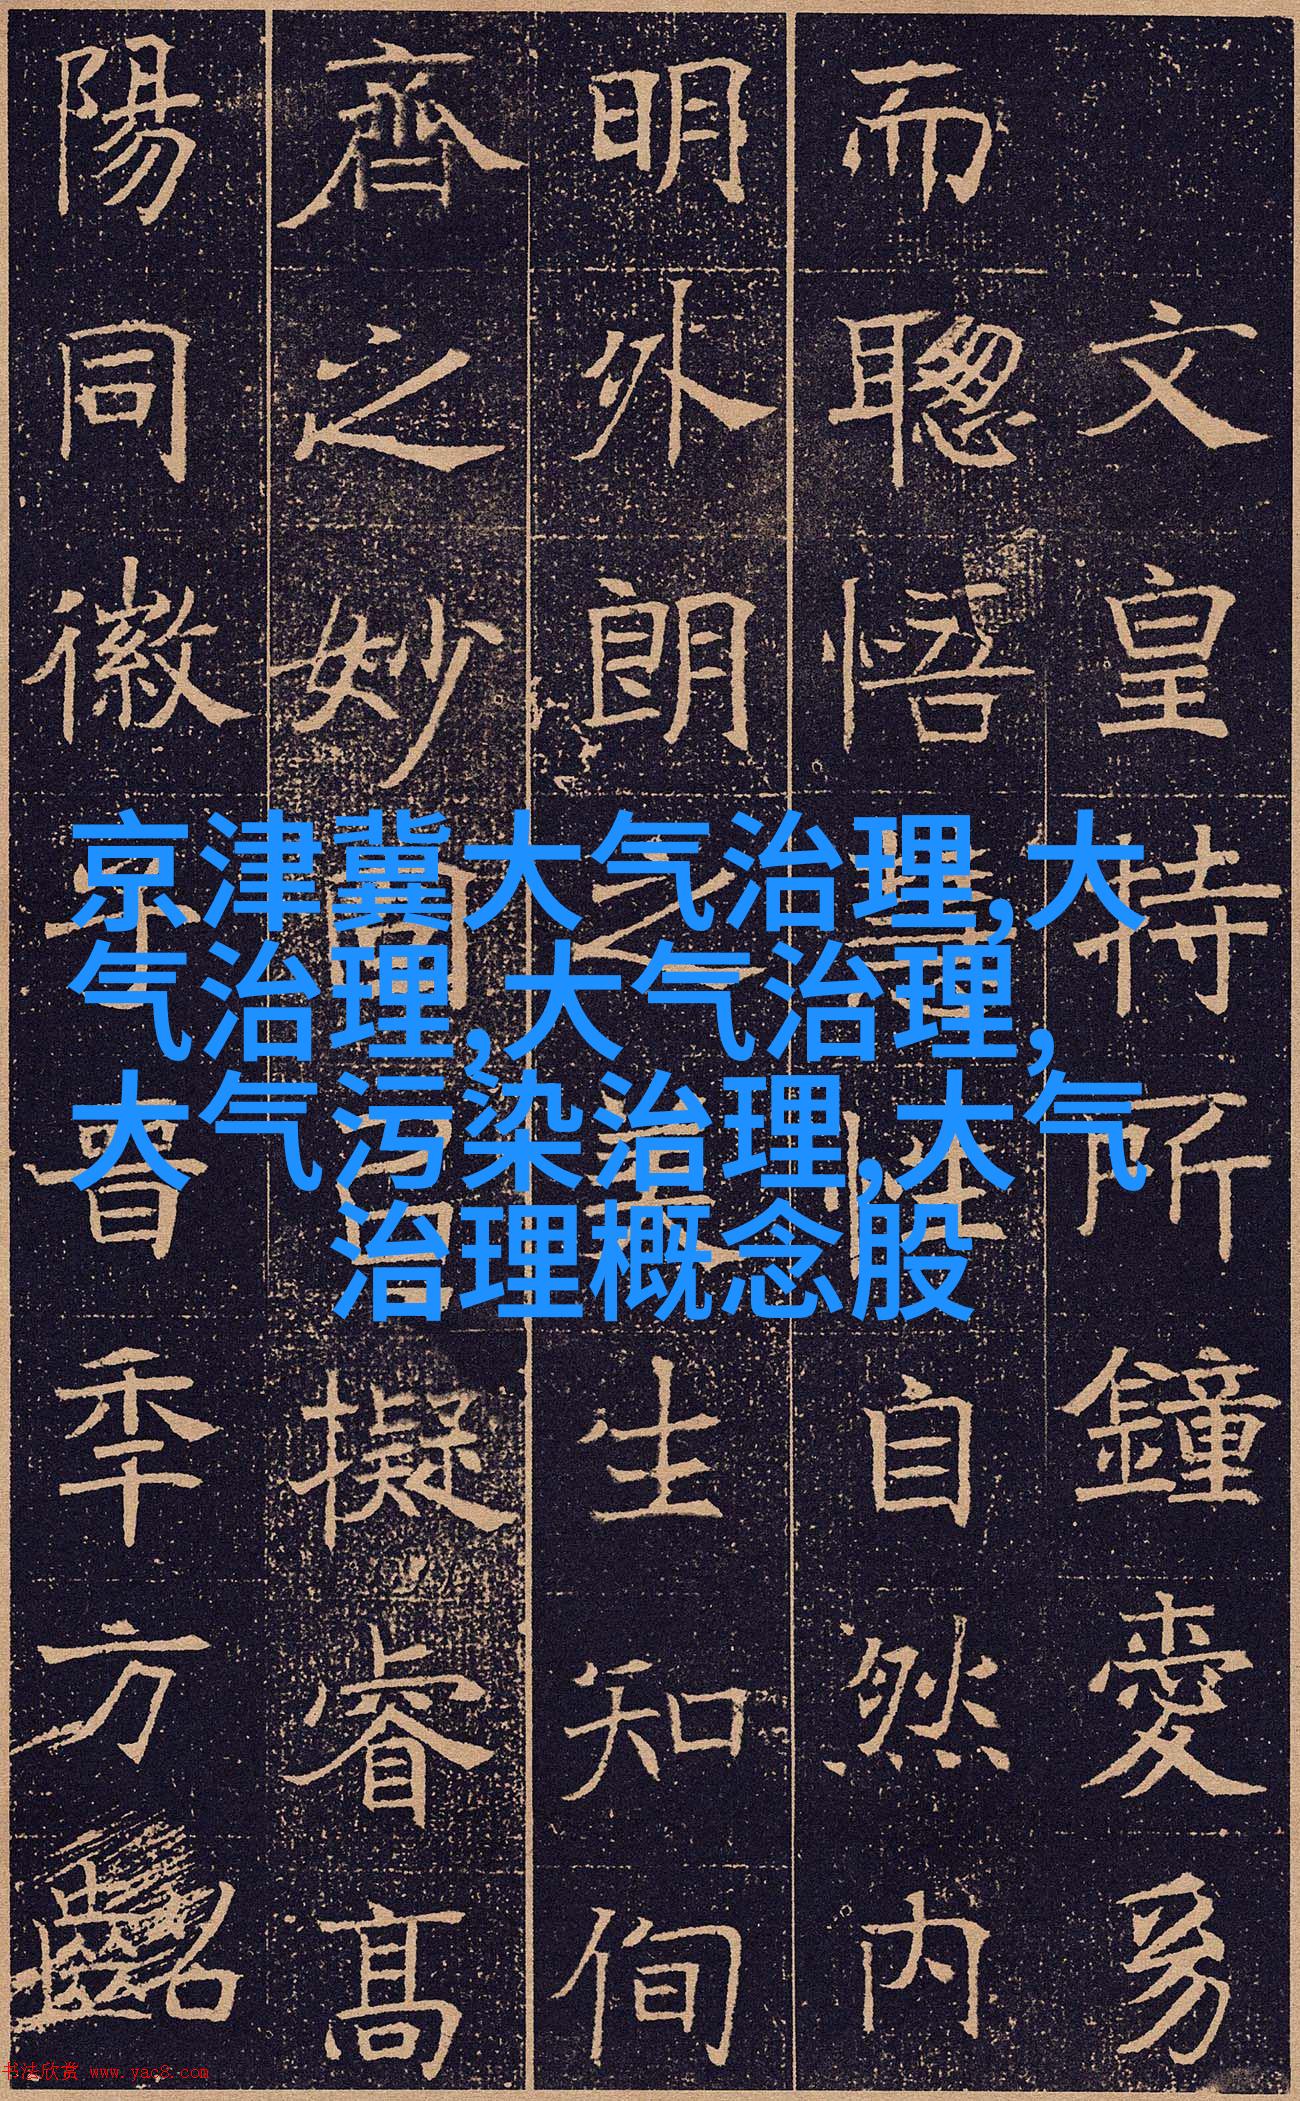 文皇特所鍾愛
而聰悟性自然内
明外朗之生知侚
齊之妙擬睿高
陽同徽晋季方齠
京津冀大气治理,大
气治理,大气治理,
大气污染治理,大气
治理概念股
书法欣赏 www.yac8.com